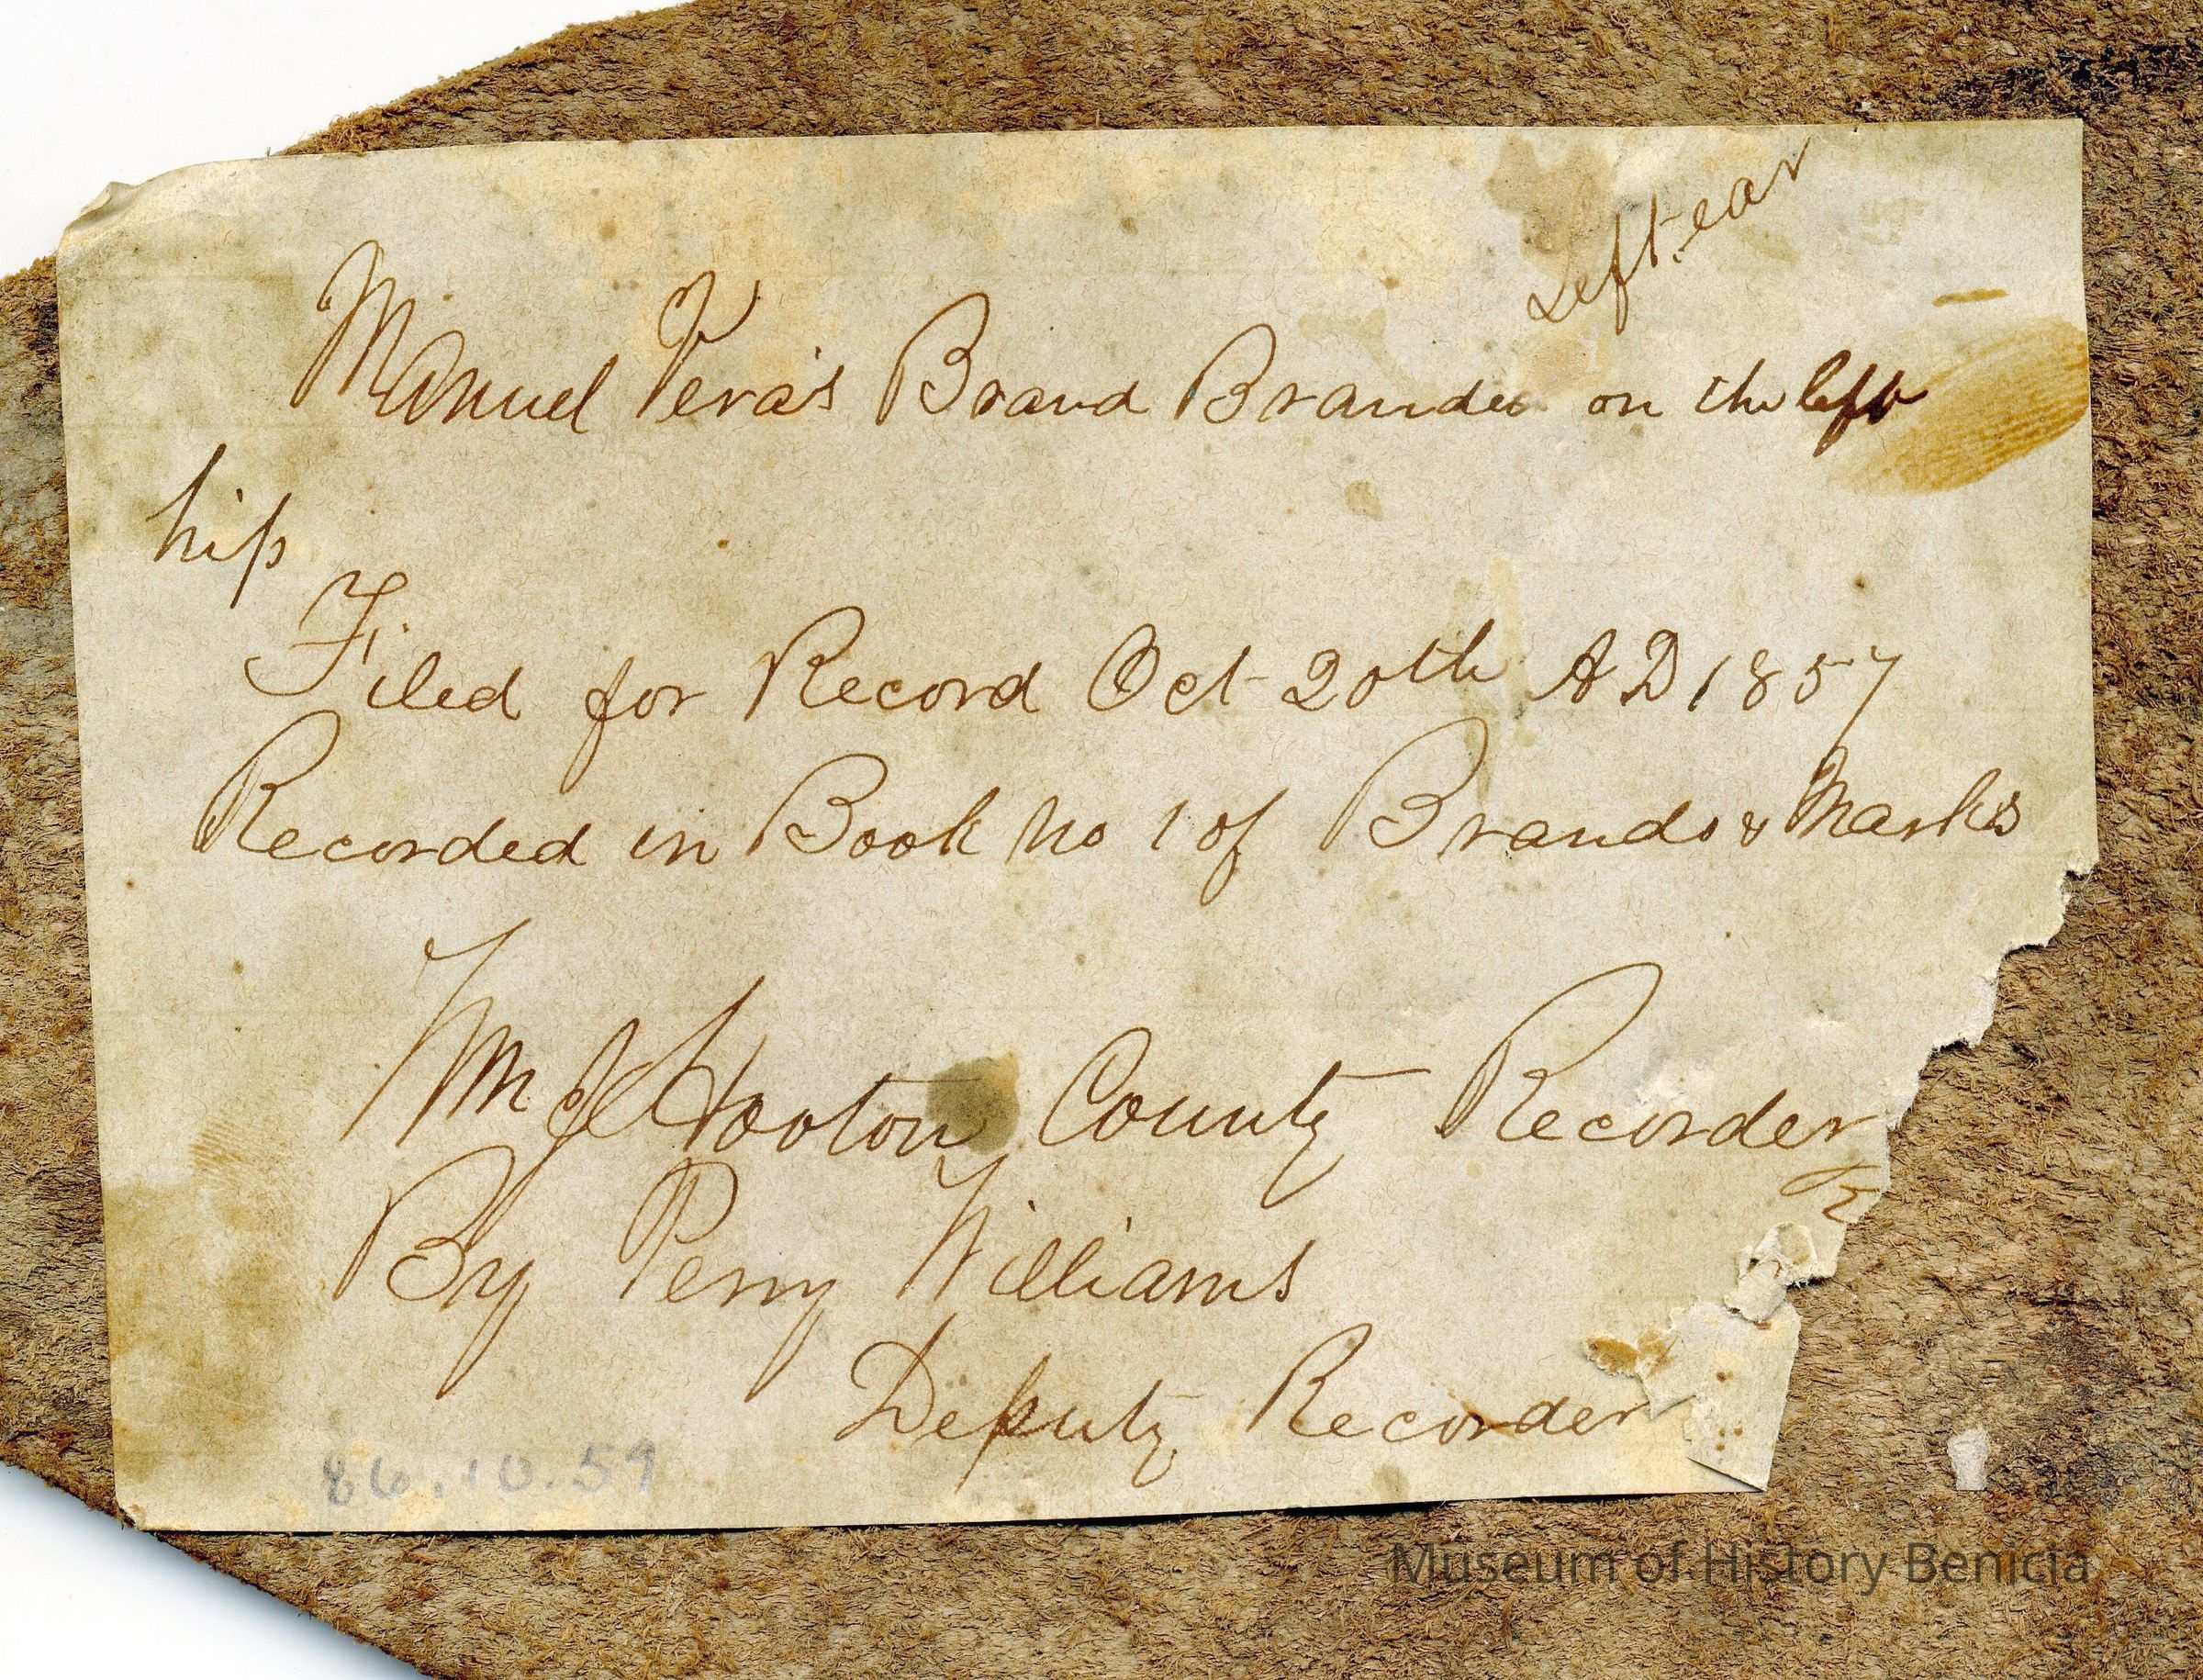 Left ear
Manuel Vera's Brand Branded on the left
hip
Filed for Record Oct 20th AD 1857
Recorded in Book No 1 of Brands & Marks
Wm J Hooton County Recorder
By Perry Williams
Deputy Recorder
86.10.59
Museum of History Benicia